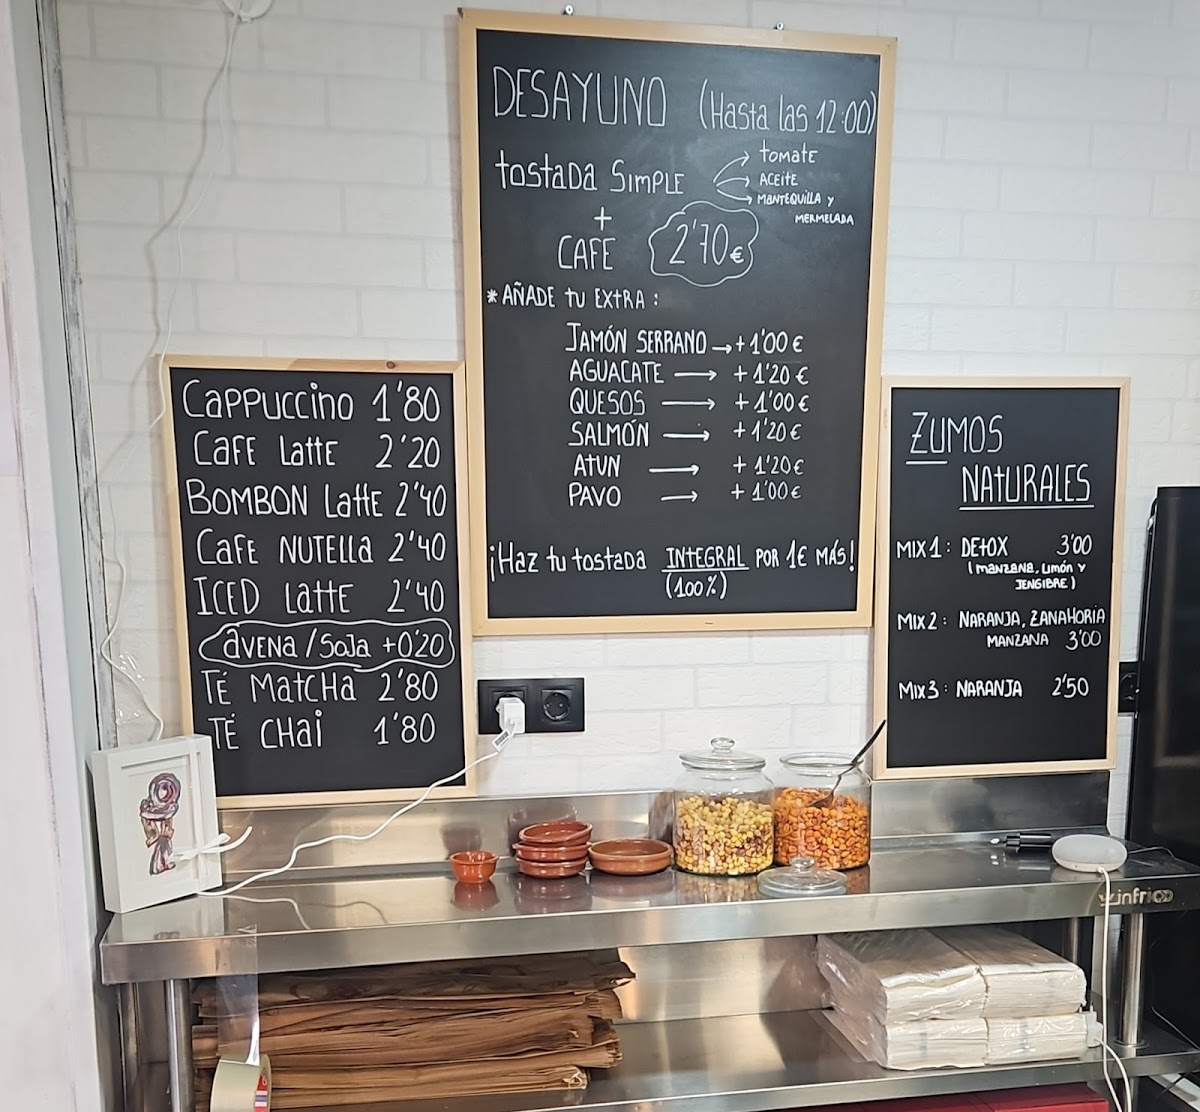 DESAYUNO (Hasta las 12:00)
tostada SIMPLE
TOMATE
ACEITE
MANTEQUILLA Y
MERMELADA
+
CAFE 2'70€
*AÑADE tu EXTRA:
JAMÓN SERRANO → +1'00€
AGUACATE → +1'20€
QUESOS → +1'00€
SALMÓN → +1'20€
ATUN → +1'20€
PAVO → +1'00€
¡Haz tu tostada INTEGRAL POR 1€ MÁS!
(100%)
Cappuccino 1'80
Cafe Latte 2'20
BOMBON Latte 2'40
Cafe NUTELLA 2'40
ICED Latte 2'40
avena/Soja +0'20
TÉ MatcHa 2'80
TÉ CHai 1'80
ZUMOS
NATURALES
MIX 1: DETOX 3'00
(MANZANA, LIMÓN Y
JENGIBRE)
MIX 2: NARANJA, ZANAHORIA
MANZANA 3'00
MIX 3: NARANJA 2'50
infrico